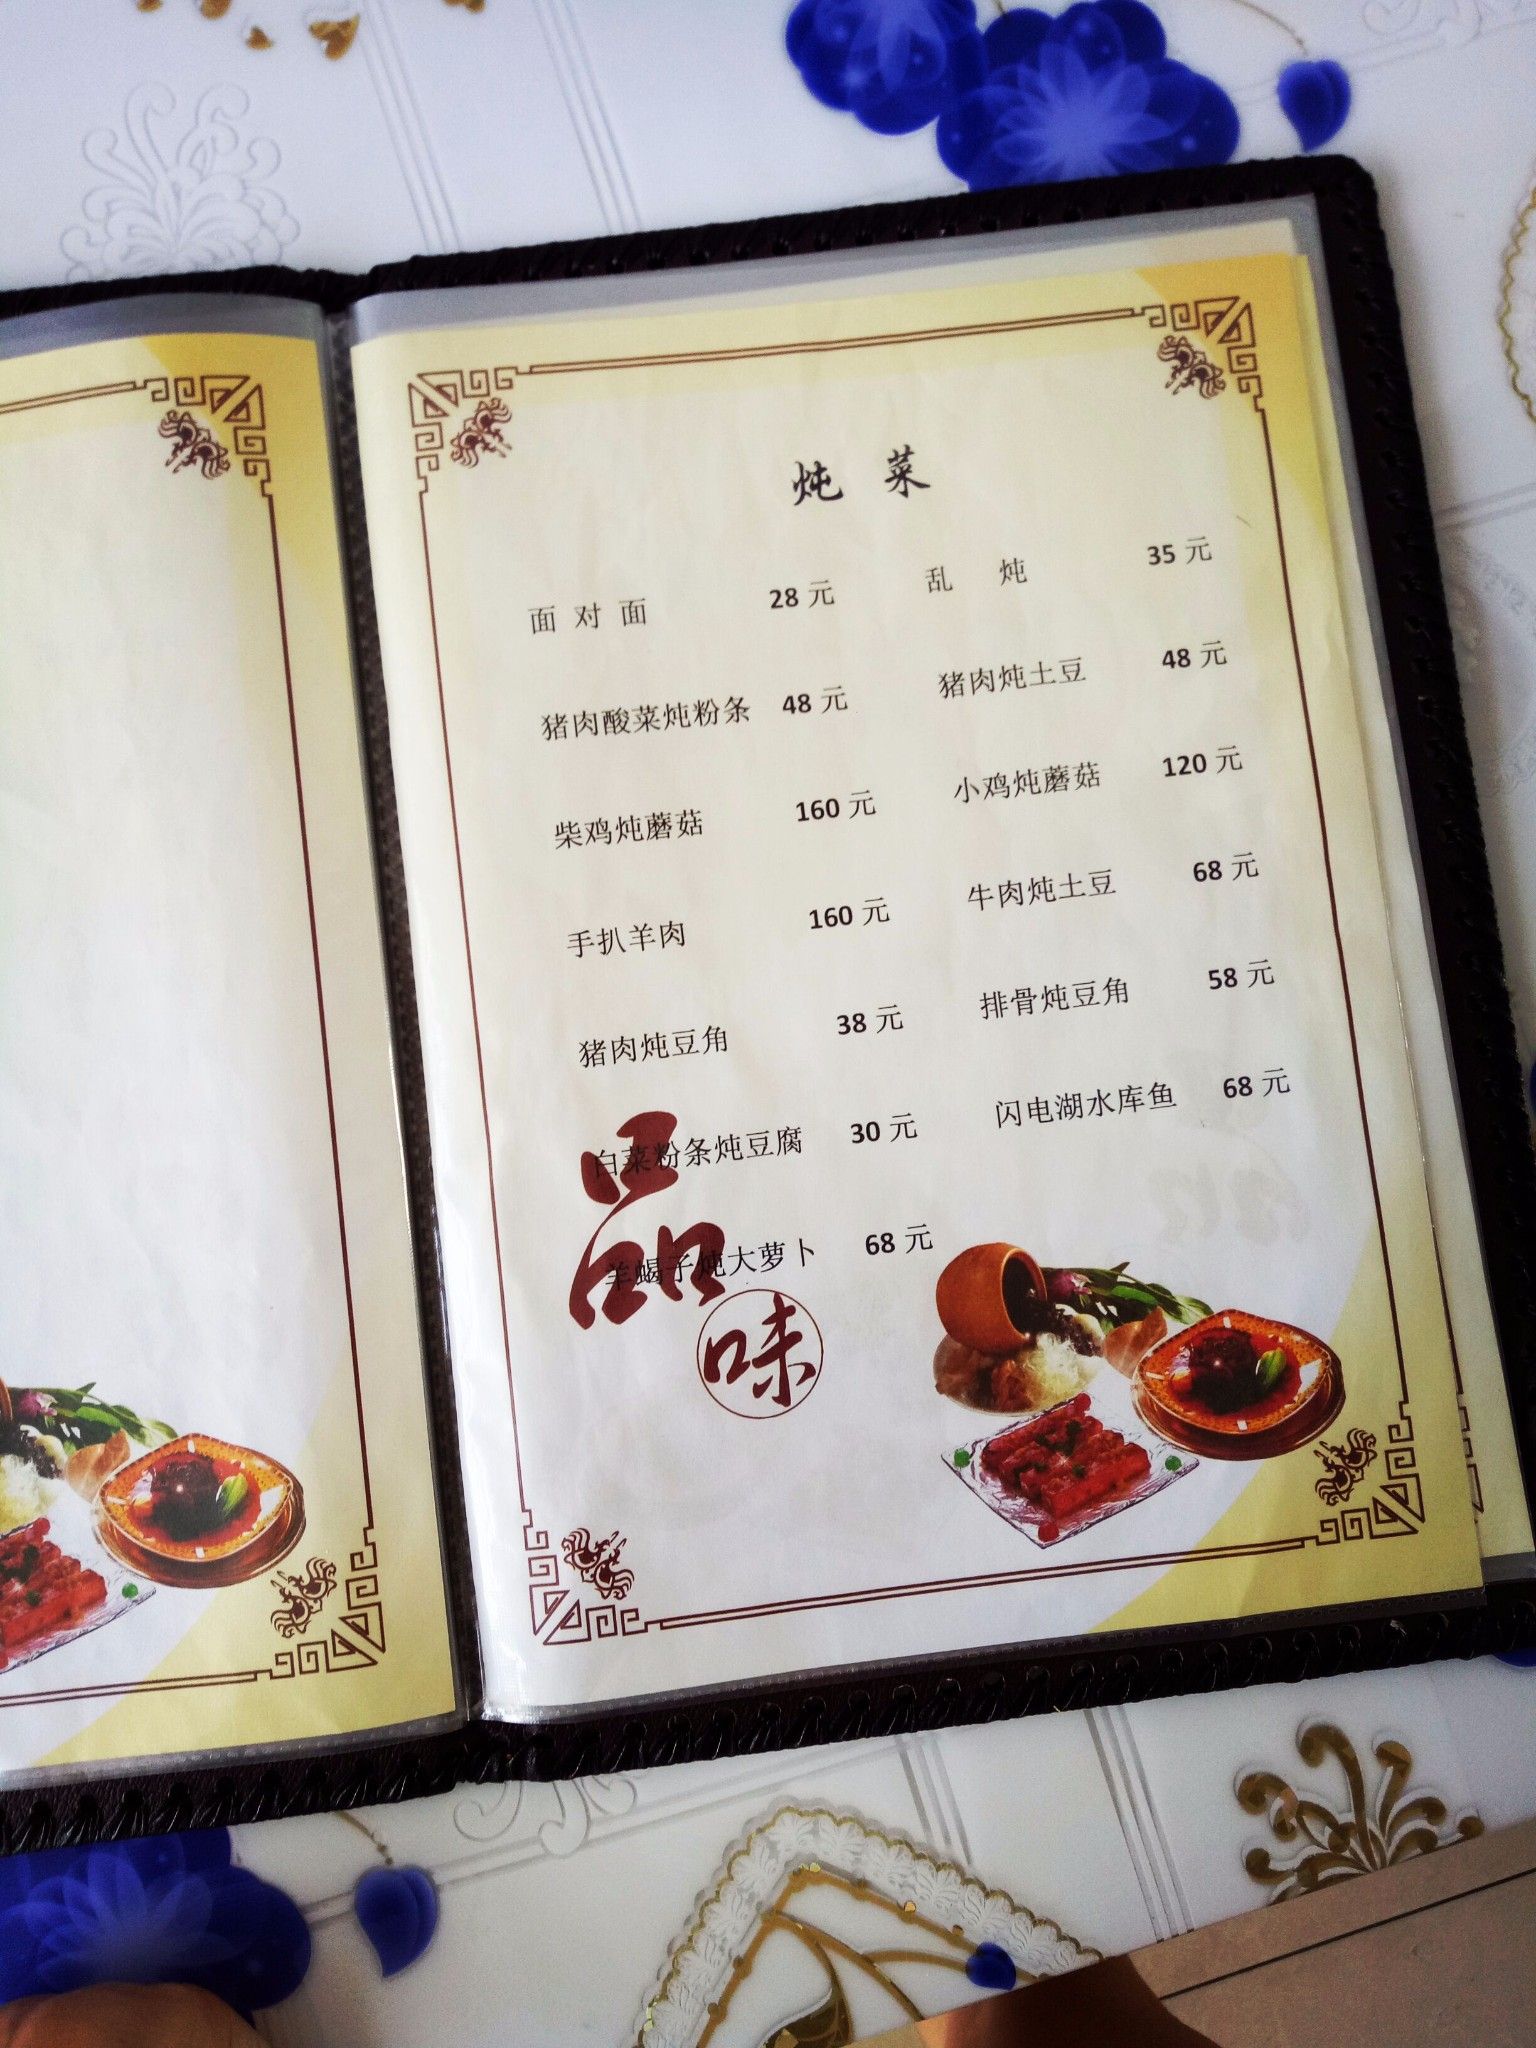 炖 菜
面 对 面 28 元 乱 炖 35 元
猪肉酸菜炖粉条 48 元 猪肉炖土豆 48 元
柴鸡炖蘑菇 160 元 小鸡炖蘑菇 120 元
手扒羊肉 160 元 牛肉炖土豆 68 元
猪肉炖豆角 38 元 排骨炖豆角 58 元
白菜粉条炖豆腐 30 元 闪电湖水库鱼 68 元
羊蝎子炖大萝卜 68 元
品
味